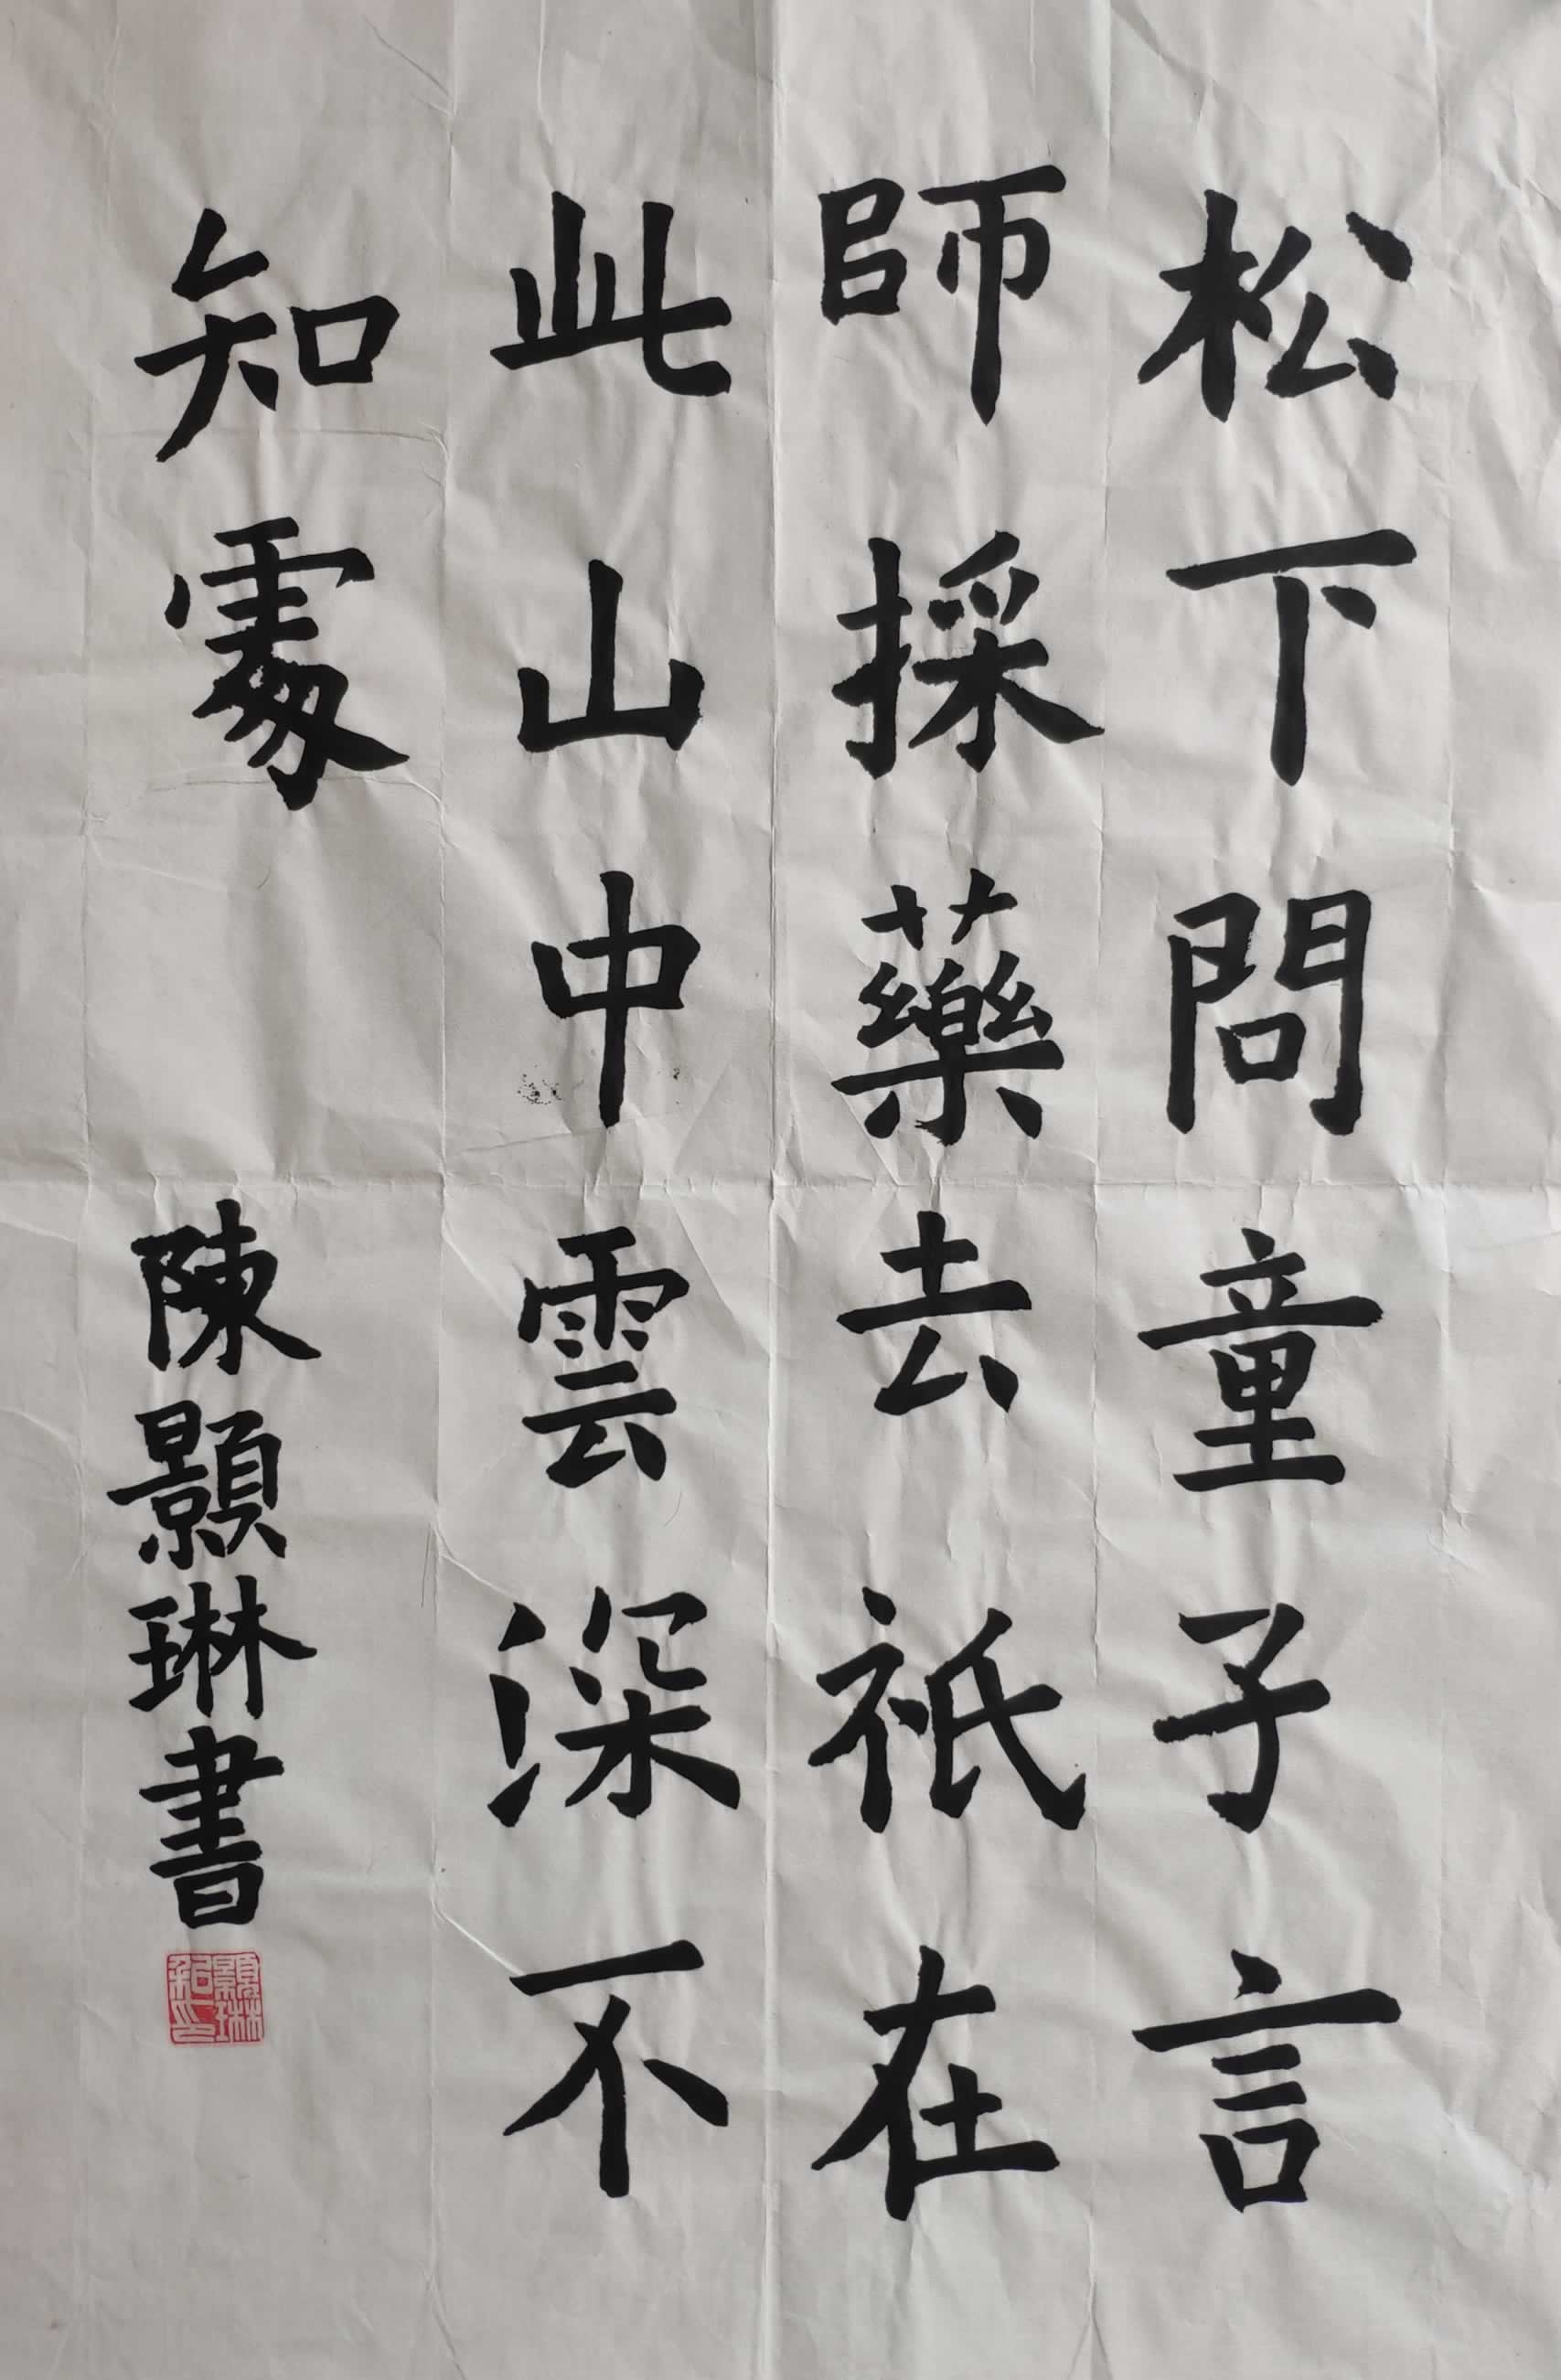 松下問童子言
師採藥去祇在
此山中雲深不
知處
陳顥琳書